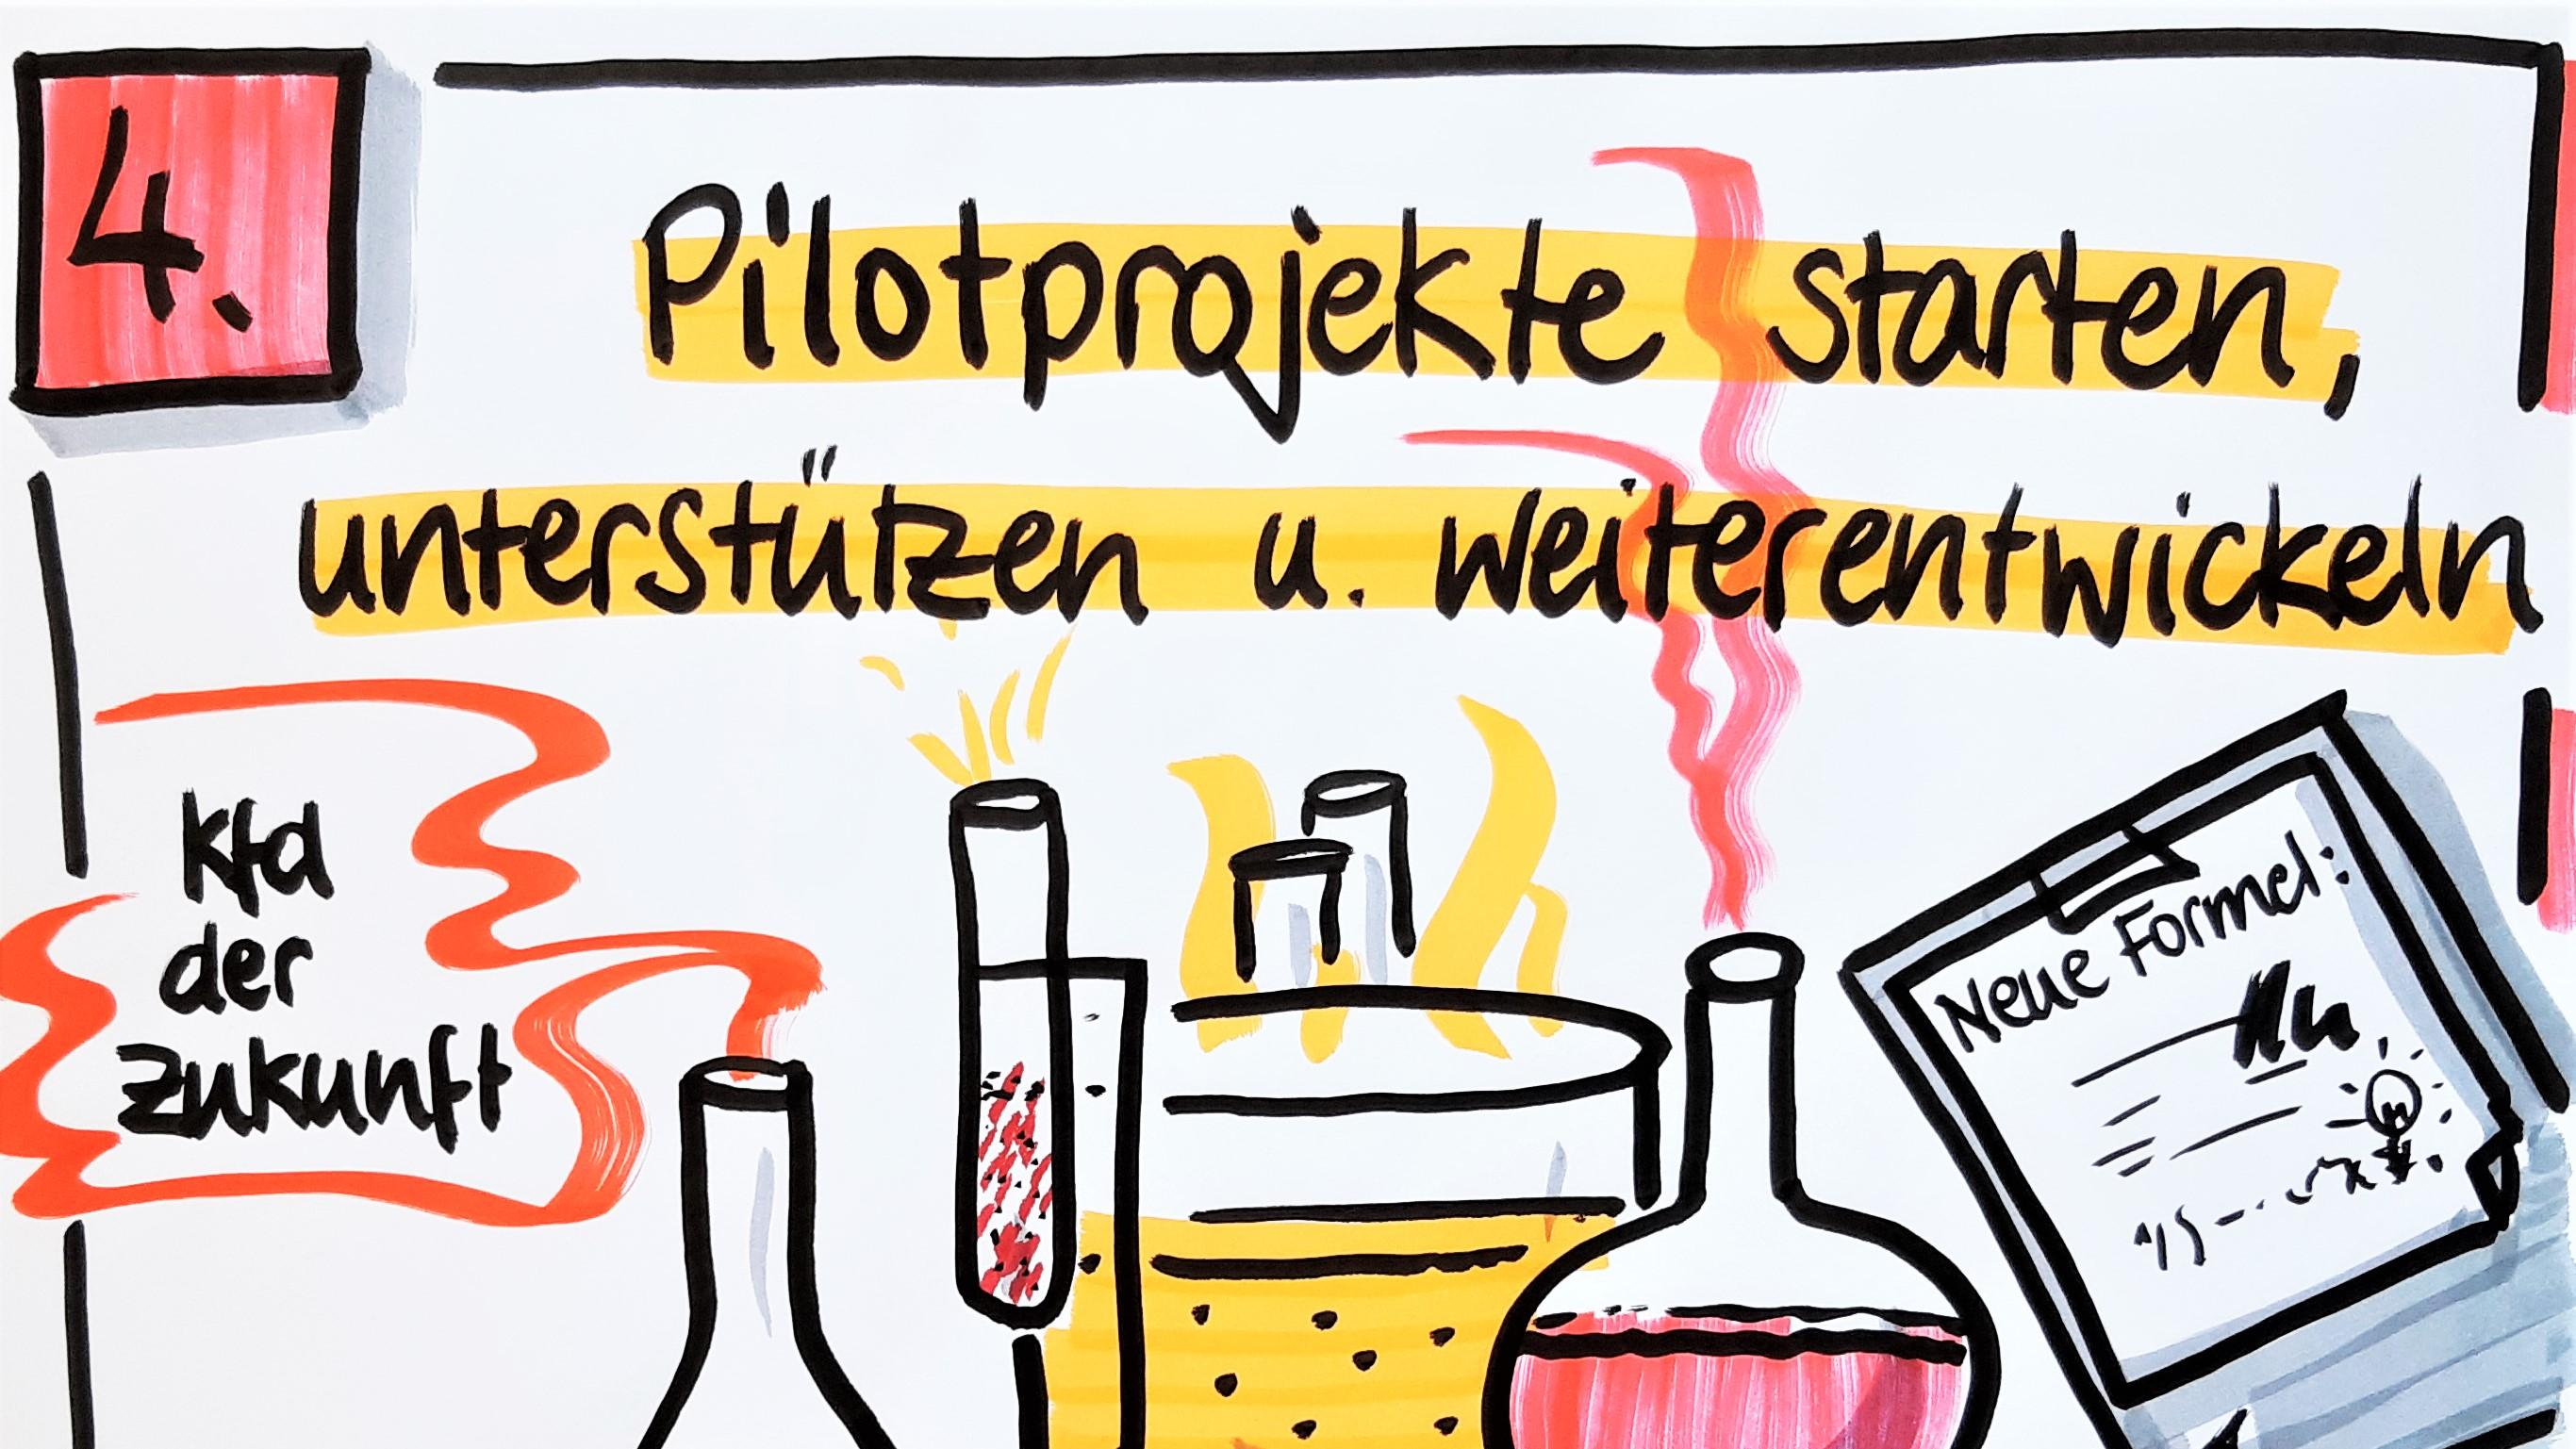 4.
Pilotprojekte starten,
unterstützen u. weiterentwickeln
kfd
der
Zukunft
Neue Formel: